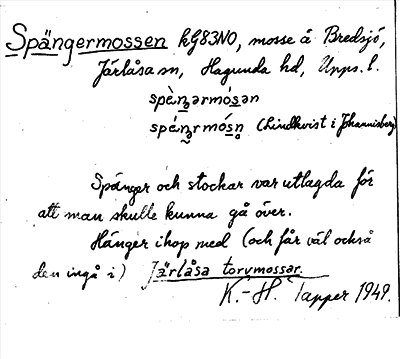 Spängermossen kG83NO, mosse å Bredsjö,
Järlåsa sn, Hagunda hd, Upps. l.
spèŋərmósən
spéŋrmósn (Lindkvist i Johannisberg)
Spänger och stockar var utlagda för
att man skulle kunna gå över.
Hänger ihop med (och får väl också
den ingå i) Järlåsa torvmossar.
K.-H. Tapper 1949.